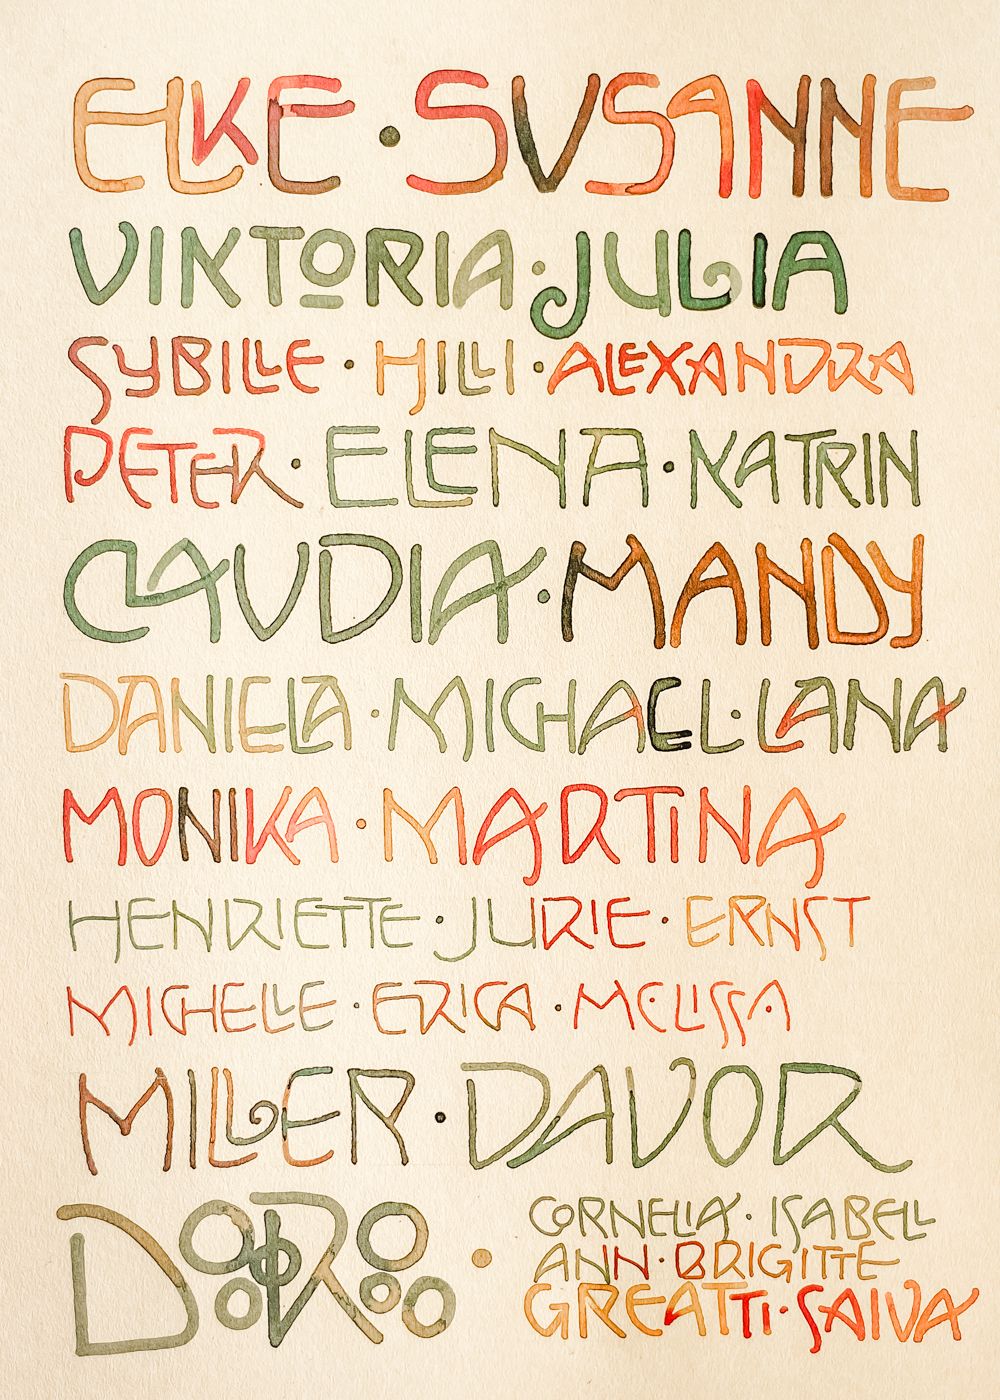 ELKE · SUSANNE
VIKTORIA · JULIA
SYBILLE · HILLI · ALEXANDRA
PETER · ELENA · KATRIN
CLAUDIA · MANDY
DANIELA · MICHAEL · LANA
MONIKA · MARTINA
HENRIETTE · JURIE · ERNST
MICHELLE · ERICA · MELISSA
MILLER · DAVOR
DORO ·
CORNELIA · ISABELL
ANN · BRIGITTE
GREATTI · SALVA